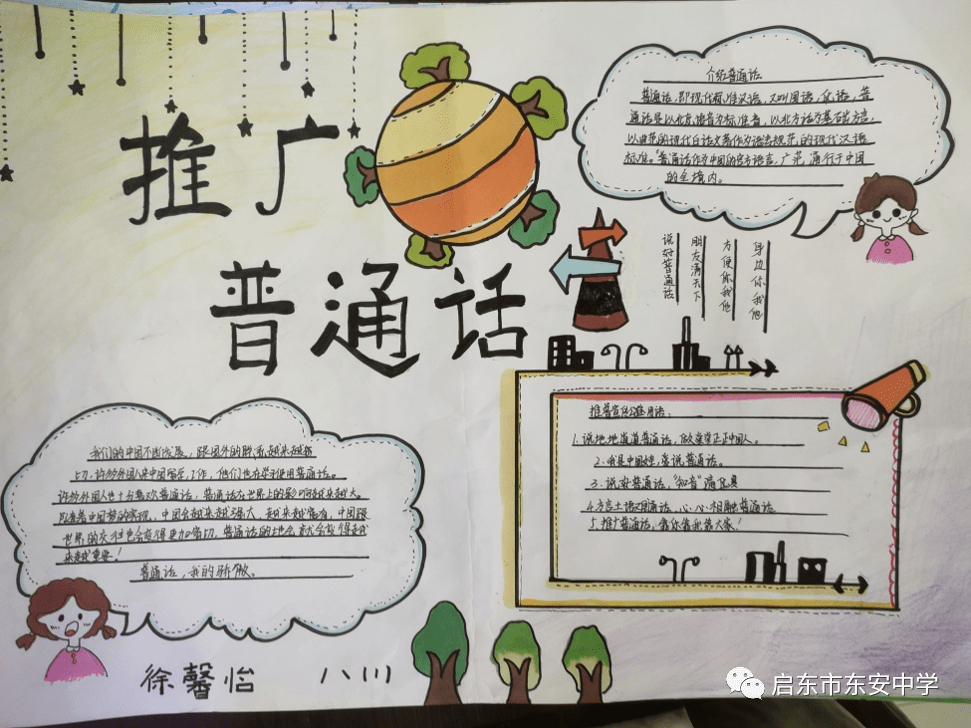 推广
普通话
介绍普通话
普通话,即现代标准汉语,又叫国语、华语,普
通话是以北京语音为标准音,以北方话为基础方言,
以典范的现代白话文著作为语法规范的现代汉语
标准。普通话作为中国的官方语言,广范通行于中国
的全境内。
说好普通话
朋友满天下
方便你我他
身边你我他
推普宣传标语用语:
1.说地地道道普通话,做堂堂正正中国人。
2.我是中国娃,爱说普通话。
3.说好普通话,“知音”满华夏
4.方言土语用通话,心心相融普通话
5.推广普通话,靠你靠我靠大家!
我们的中国不断发展,跟国外的联系越来越
切,许多外国人来中国留学、工作,他们也在学习使用普通话。
许多外国人也十分喜欢普通话,普通话在世界上的影响越来越大。
中国会越来越强大,越来越富有,中国跟
世界的交往也会变得更加密切,普通话的地位就会变得越
来越重要!
普通话,我的骄傲。
徐馨怡
八川
启东市东安中学